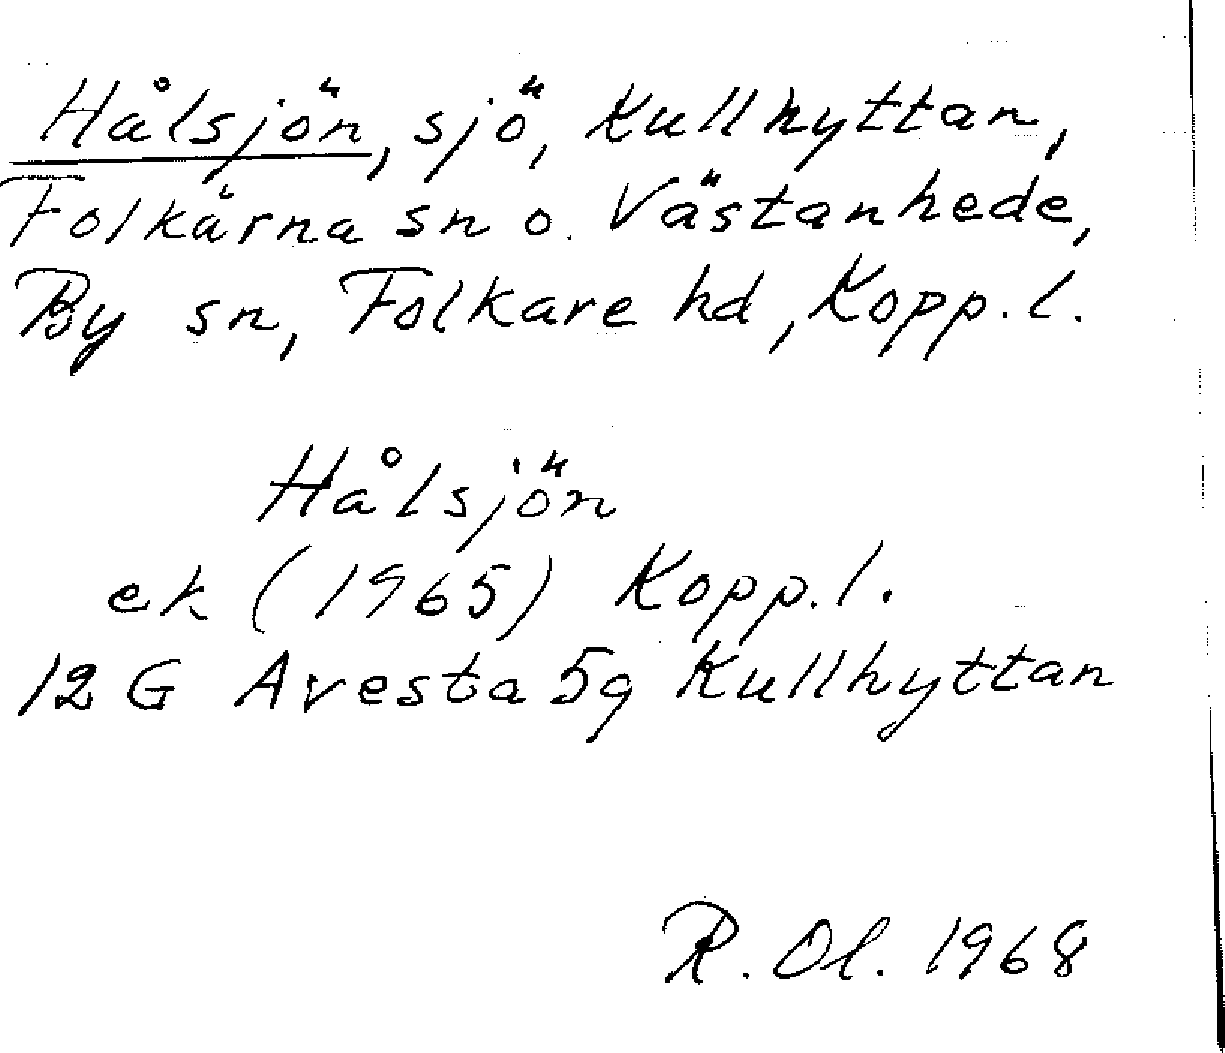 Hålsjön, sjö, Kullhyttan,
Folkärna sn o. Västanhede,
By sn, Folkare hd, Kopp. l.
Hålsjön
ek (1965) Kopp. l.
12 G Avesta 5g Kullhyttan
R. Ol. 1968